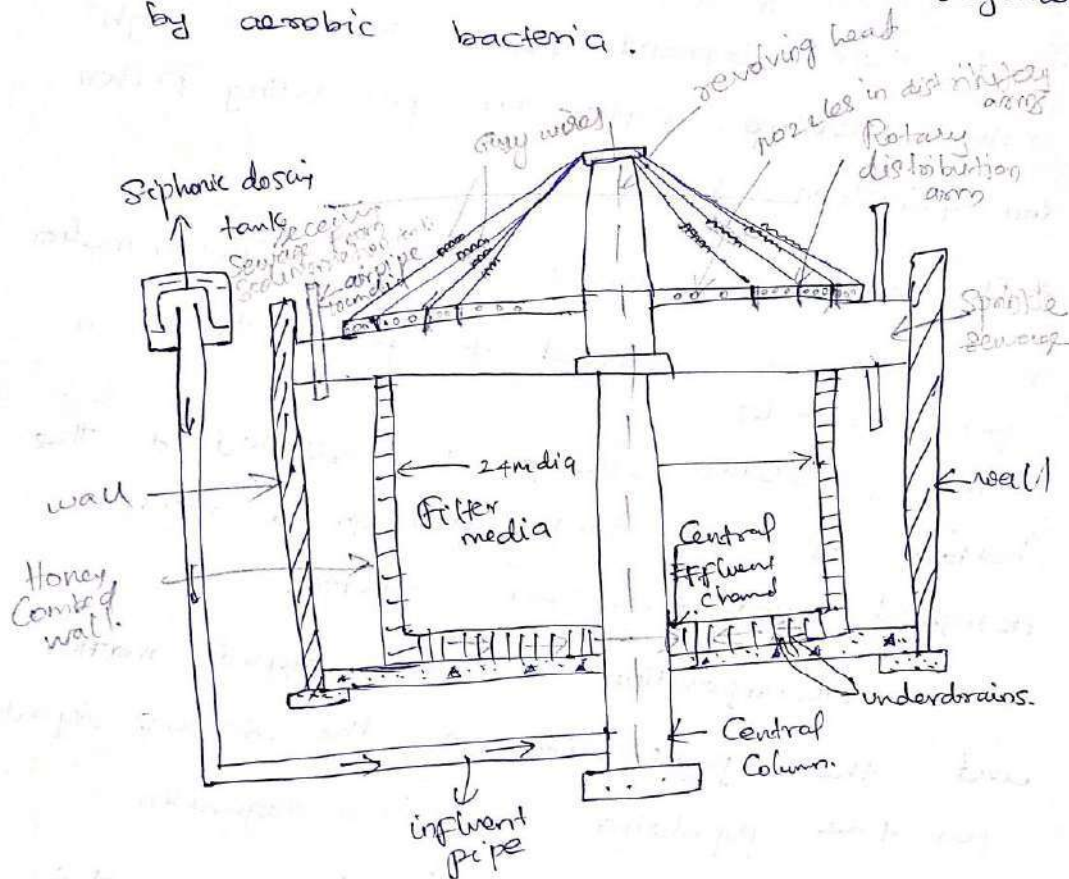 by aerobic bacteria.
revolving head
Guy wires
nozzles in distributory
arms
Rotary
distribution
arm
Siphonic dosing
tank receiving
sewage from
sedimentation tank
air pipe
24m dia
wall
Filter
media
wall
Honey
Combed
wall.
Central
Effluent
underdrains.
Central
Column.
influent
pipe